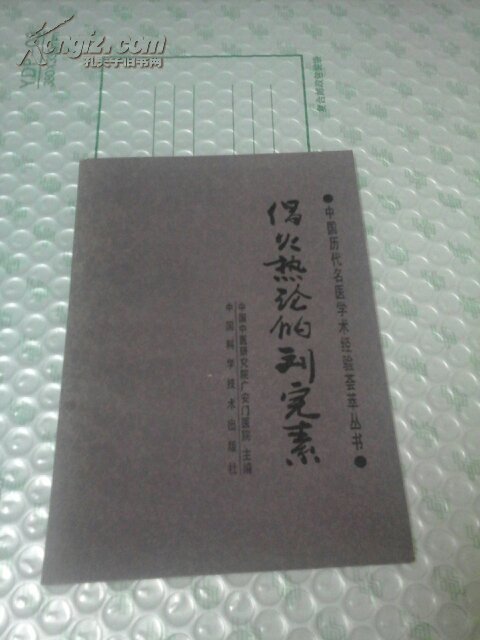 Kongfz.com
孔夫子旧书网
●中国历代名医学术经验荟萃丛书●
倡火热论的刘完素
中国中医研究院广安门医院 主编
中国科学技术出版社